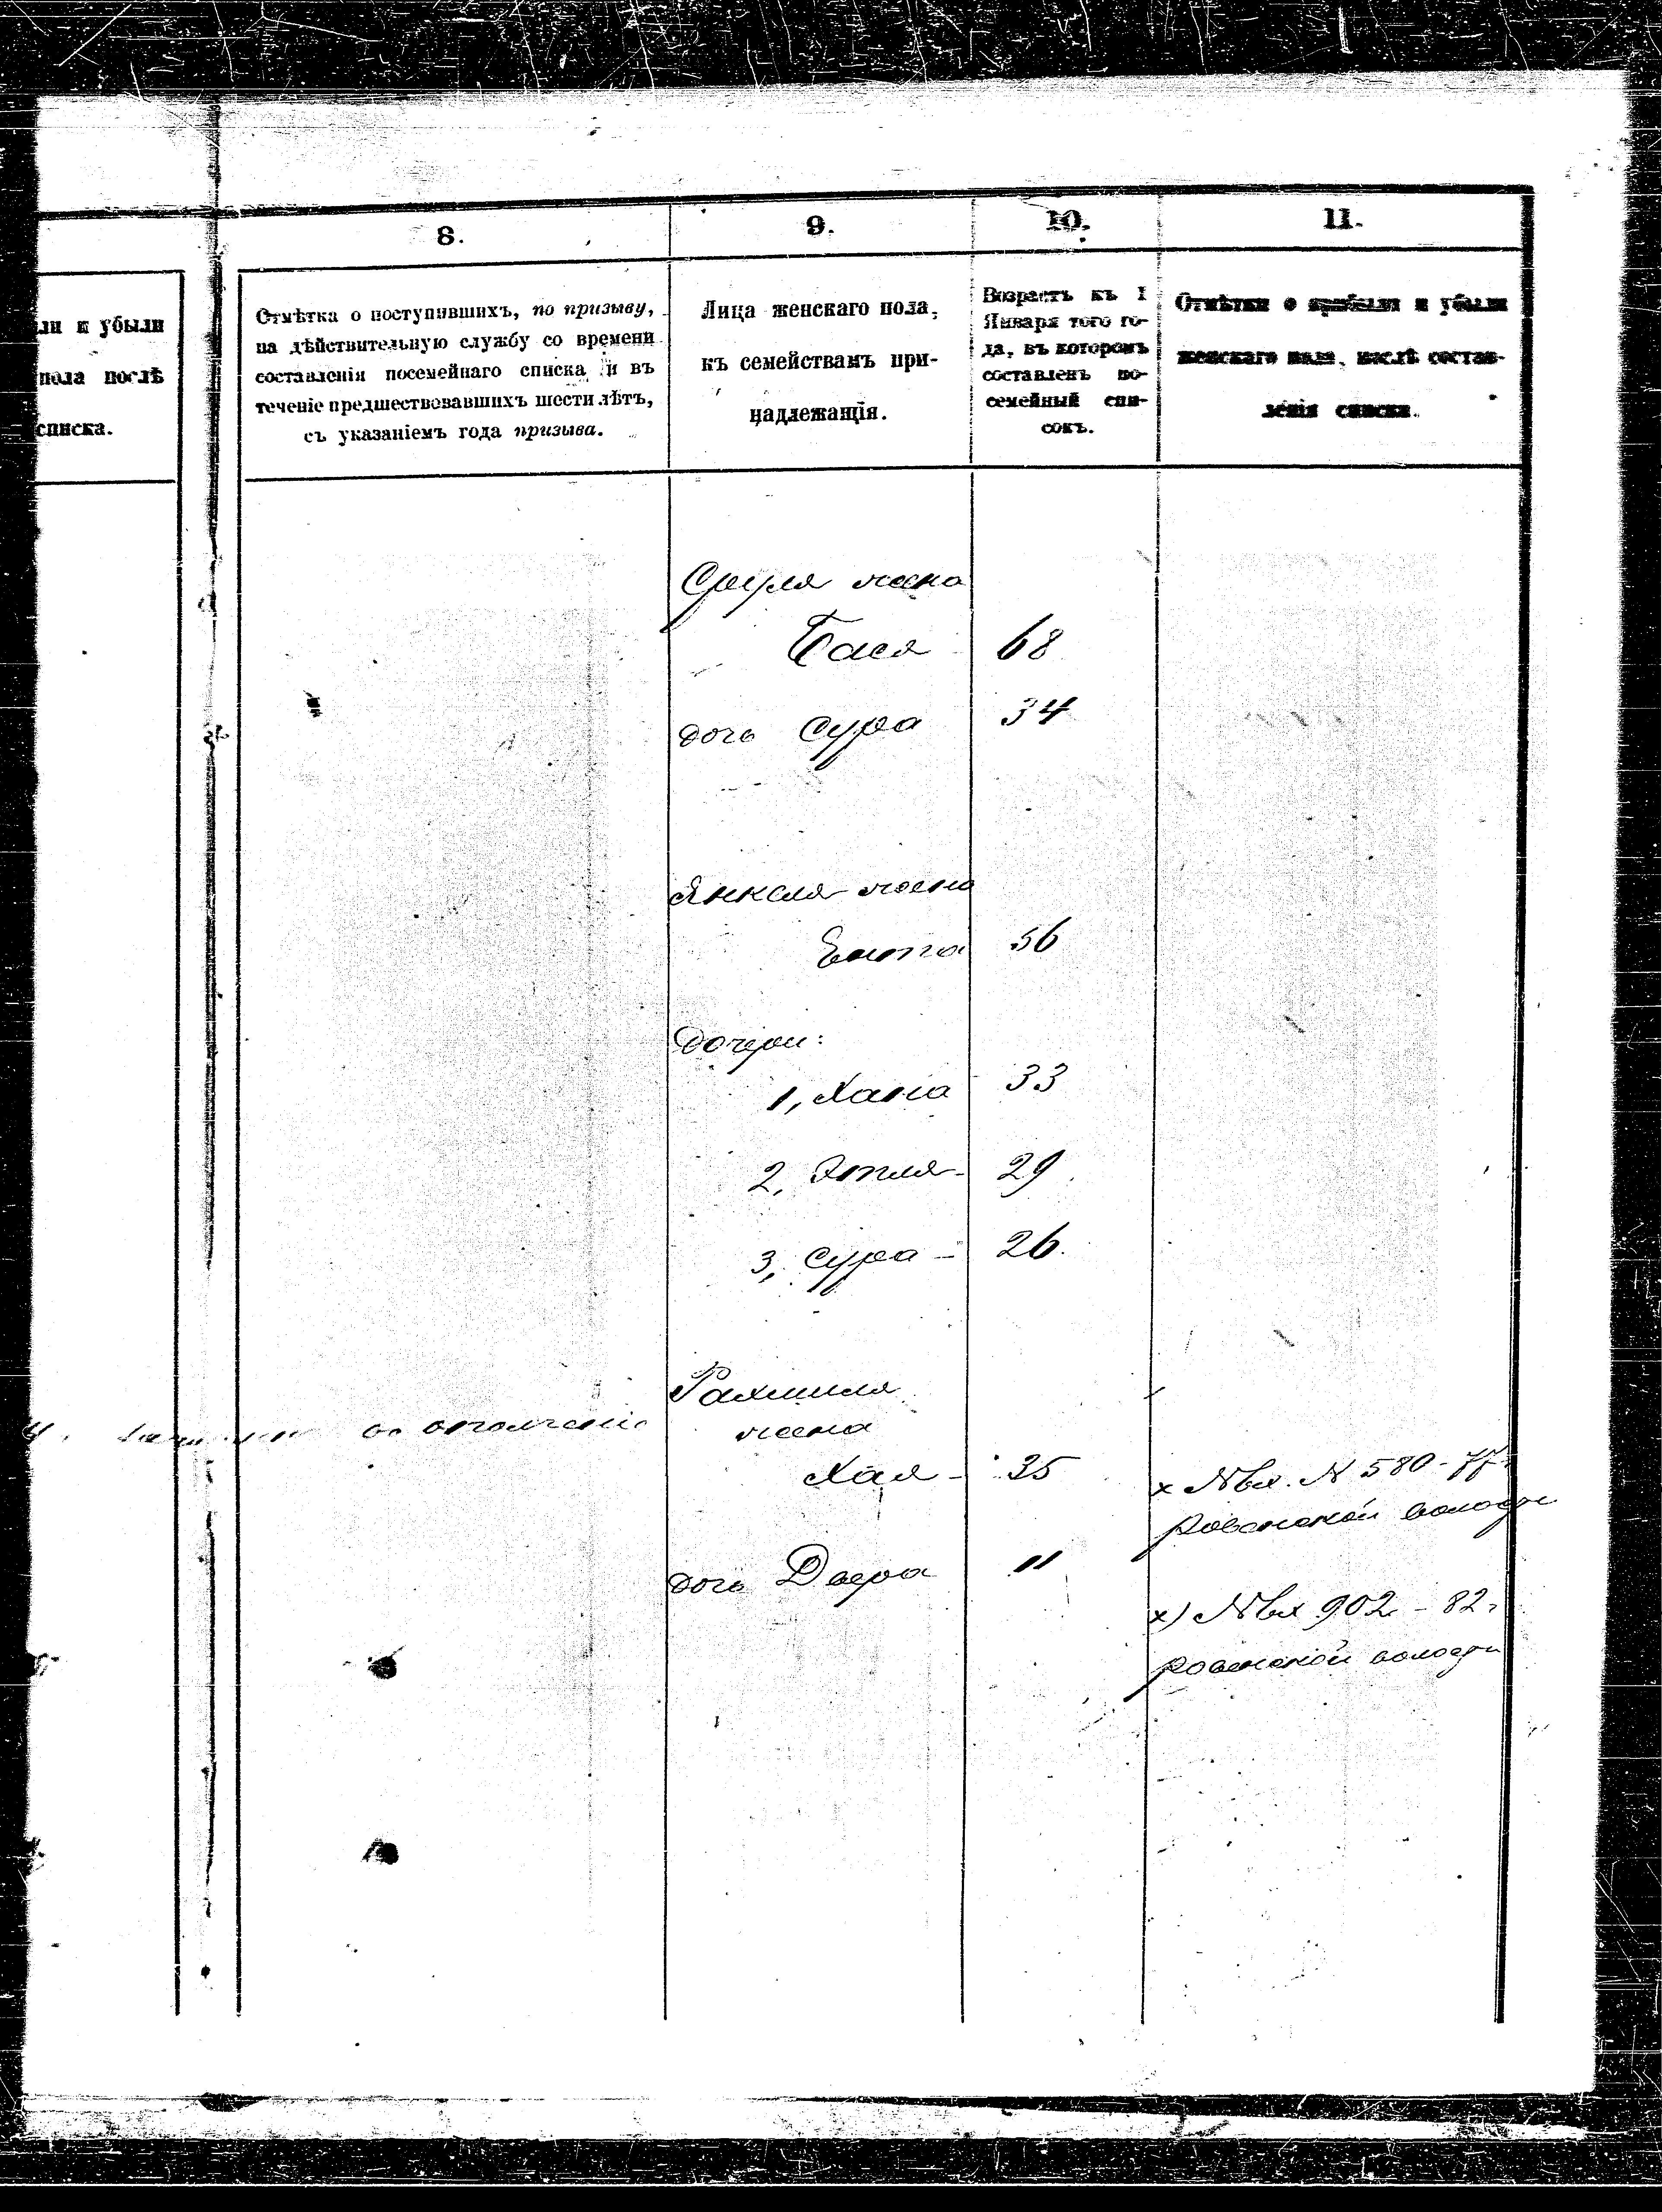 8.
9.
10.
11.
ли и убыли
пола послѣ
списка.
Отмѣтка о поступившихъ, по призыву,
на дѣйствительную службу со времени
составленія посемейнаго списка и въ
теченіе предшествовавшихъ шести лѣтъ,
съ указаніемъ года призыва.
Лица женскаго пола,
къ семействамъ при-
надлежащія.
Возрастъ къ 1
Января того го-
да, въ которомъ
составленъ по-
семейный спи-
сокъ.
Отмѣтки о прибыли и убыли
женскаго пола, послѣ состав-
ленія списка.
Сруля жена
Бася 68
дочь Сура 34
Янкеля жена
Ента 56
Дочери:
1, Хана 33
2, Этля - 29
3, Сура - 26.
Рахмиля
жена
въ ополченіе
Хая - 35
х №вх. N 580 - 77
Ровенской волости
дочь Двера 11
х) №вх 902 - 82
ровенской волости